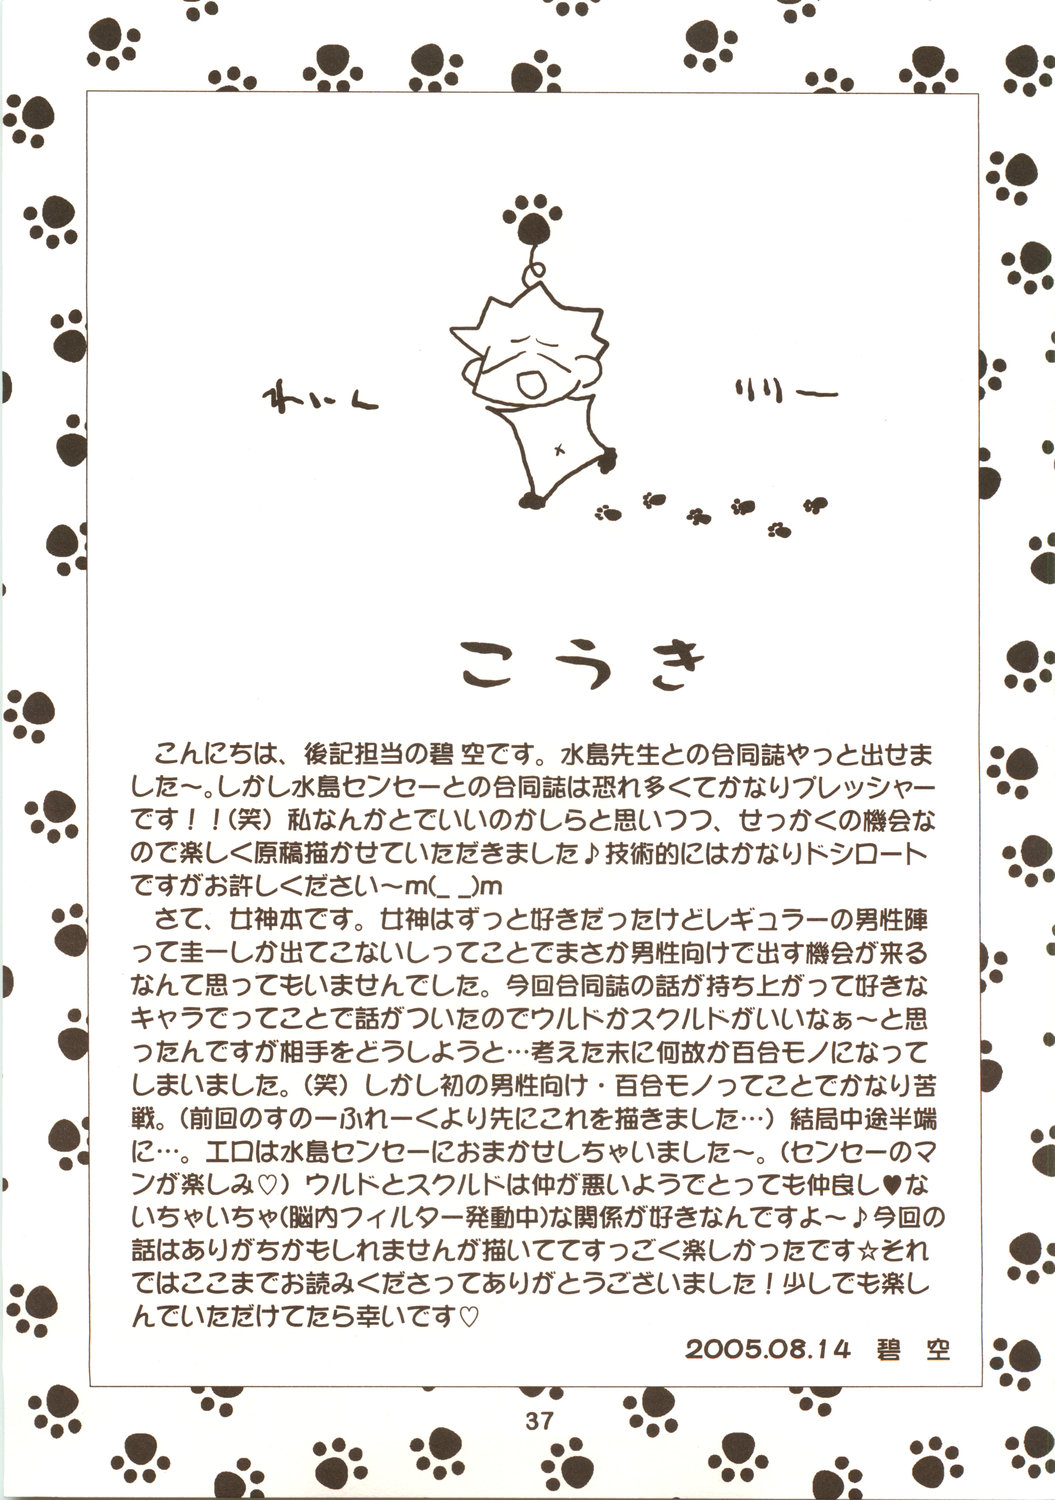 れいん
リリー
こうき
こんにちは、後記担当の碧 空です。水島先生との合同誌やっと出せま
した〜。しかし水島センセーとの合同誌は恐れ多くてかなりプレッシャー
です！！(笑) 私なんかとでいいのかしらと思いつつ、せっかくの機会な
ので楽しく原稿描かせていただきました♪技術的にはかなりドシロート
ですがお許しください〜m(_ _)m
さて、女神本です。女神はずっと好きだったけどレギュラーの男性陣
って圭一しか出てこないしってことでまさか男性向けで出す機会が来る
なんて思ってもいませんでした。今回合同誌の話が持ち上がって好きな
キャラでってことで話がついたのでウルドかスクルドがいいなぁ〜と思
ったんですが相手をどうしようと…考えた末に何故か百合モノになって
しまいました。(笑) しかし初の男性向け・百合モノってことでかなり苦
戦。(前回のすのーふれーくより先にこれを描きました…) 結局中途半端
に…。エロは水島センセーにおまかせしちゃいました〜。(センセーのマ
ンが楽しみ♡) ウルドとスクルドは仲が悪いようでとっても仲良し♥な
いちゃいちゃ(脳内フィルター発動中)な関係が好きなんですよ〜♪今回の
話はありがちかもしれませんが描いててすっごく楽しかったです☆それ
ではここまでお読みくださってありがとうございました！少しでも楽し
んでいただけてたら幸いです♡
2005.08.14 碧 空
37